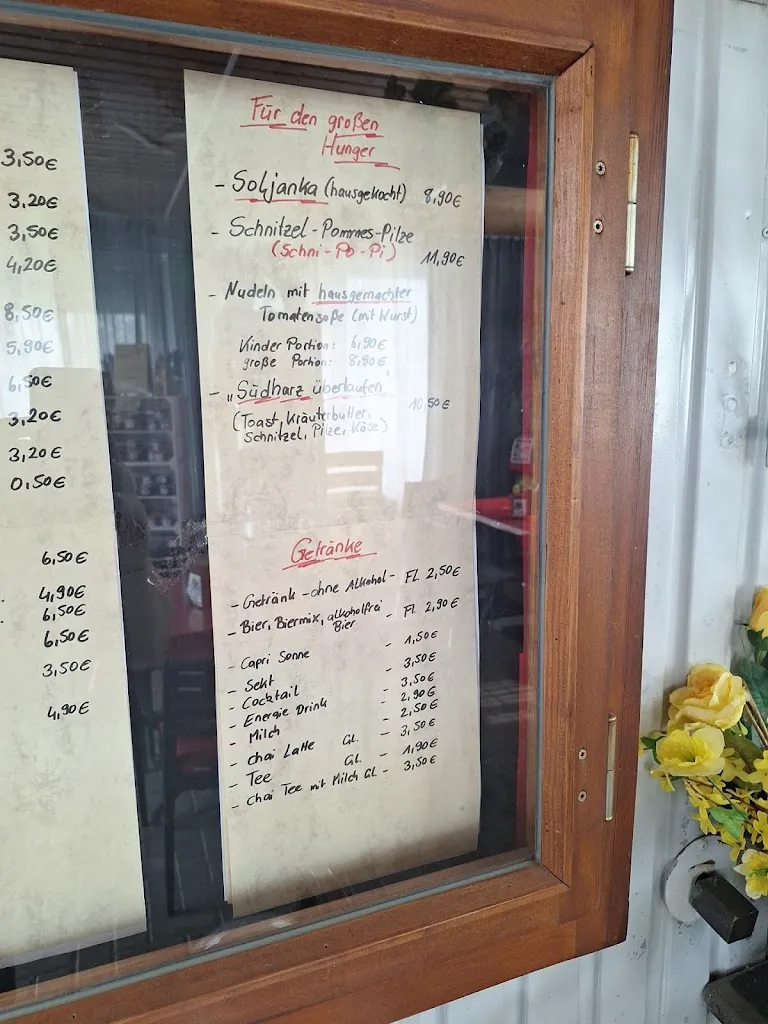 3,50€
3.20€
3,50€
4,20€
8,50€
5,90€
6,50€
3,20€
3,20€
0,50€
6,50€
4,90€
6,50€
6,50€
3,50€
4,90€
Für den großen
Hunger
- Soljanka (hausgekocht) 8,90€
- Schnitzel-Pommes-Pilze
(Schni-Po-Pi) 11,90€
- Nudeln mit hausgemachter
Tomatensoße (mit Wurst)
Kinder Portion: 6,90€
große Portion: 8,90€
- „Südharz überlaufen" 10,50€
(Toast, Kräuterbutter,
Schnitzel, Pilze, Käse)
Getränke
- Getränk - ohne Alkohol - Fl. 2,50€
- Bier, Biermix, alkoholfrei - Fl. 2,90€
Bier
- Capri Sonne - 1,50€
- Sekt - 3,50€
- Cocktail - 3,50€
- Energie Drink - 2,90€
- Milch - 2,50€
- Chai Latte Gl. - 3,50€
- Tee Gl. - 1,90€
- Chai Tee mit Milch Gl. - 3,50€